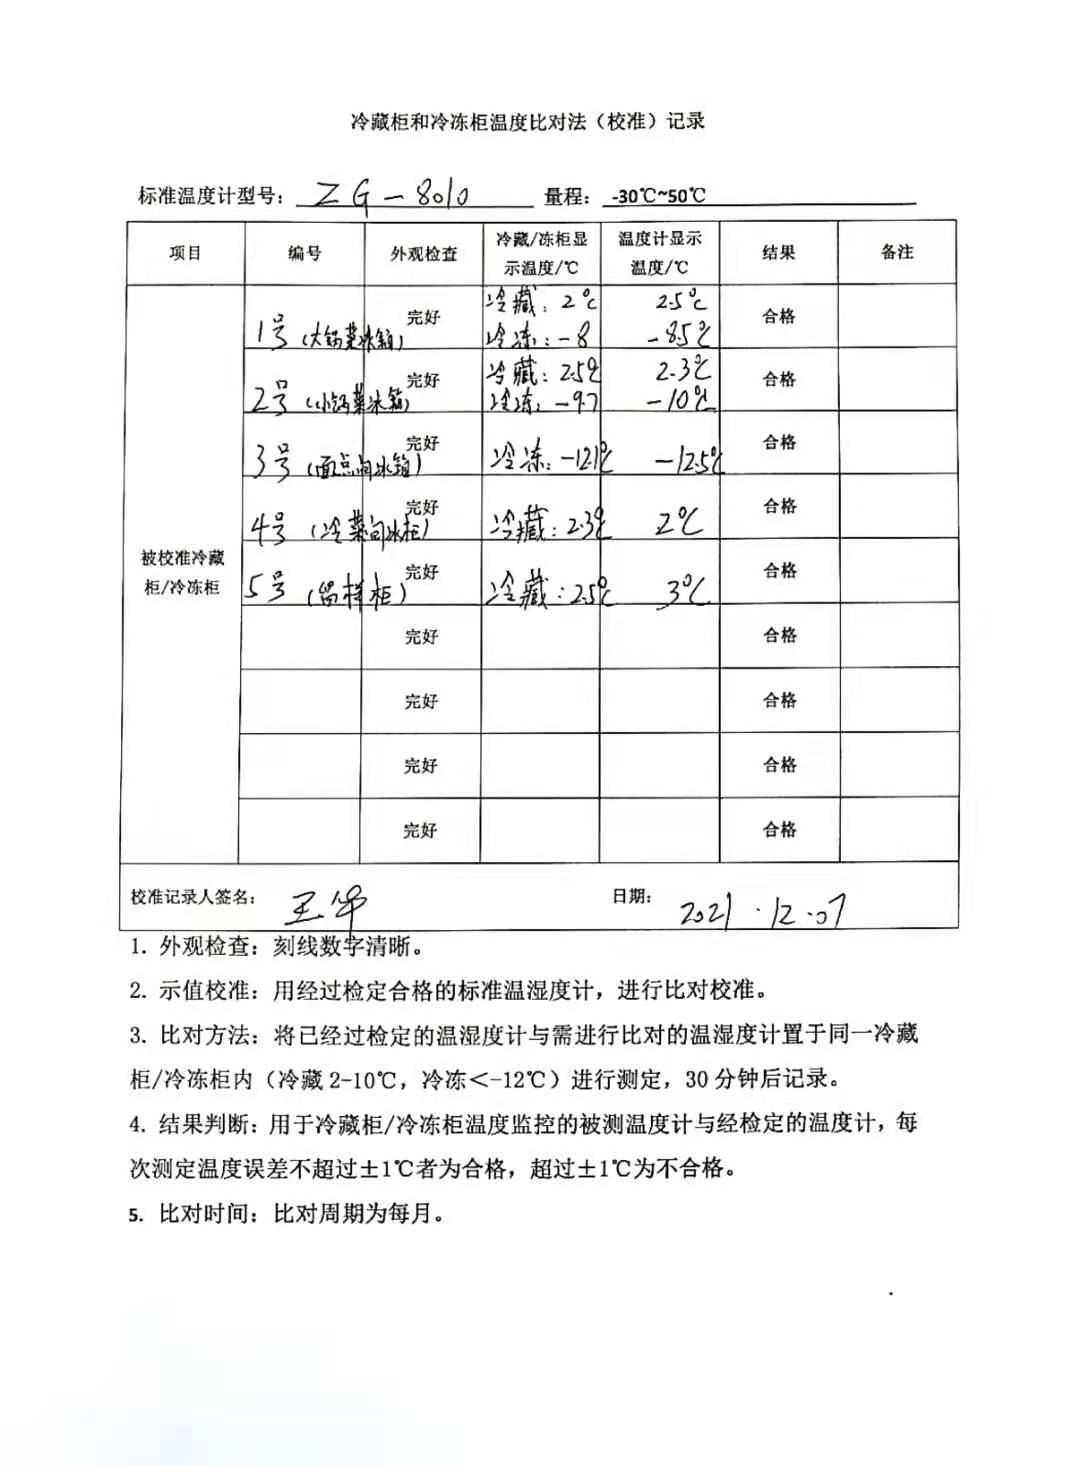 冷藏柜和冷冻柜温度比对法（校准）记录
标准温度计型号： ZG-8010 量程： -30℃~50℃
项目 编号 外观检查 冷藏/冻柜显示温度/℃ 温度计显示温度/℃ 结果 备注
被校准冷藏柜/冷冻柜
1号（大锅菜冰箱） 完好 冷藏：2℃ 2.5℃ 合格
冷冻：-8 -8.5℃
2号（小锅菜冰箱） 完好 冷藏：2.5℃ 2.3℃ 合格
冷冻：-9.7 -10℃
3号（面点间冰箱） 完好 冷冻：-12.1℃ -12.5℃ 合格
4号（冷菜间冰柜） 完好 冷藏：2.3℃ 2℃ 合格
5号（留样柜） 完好 冷藏：2.5℃ 3℃ 合格
完好 合格
完好 合格
完好 合格
完好 合格
校准记录人签名： 王华 日期： 2021.12.07
1. 外观检查：刻线数字清晰。
2. 示值校准：用经过检定合格的标准温湿度计，进行比对校准。
3. 比对方法：将已经过检定的温湿度计与需进行比对的温湿度计置于同一冷藏
柜/冷冻柜内（冷藏 2-10℃，冷冻＜-12℃）进行测定，30 分钟后记录。
4. 结果判断：用于冷藏柜/冷冻柜温度监控的被测温度计与经检定的温度计，每
次测定温度误差不超过±1℃者为合格，超过±1℃为不合格。
5. 比对时间：比对周期为每月。